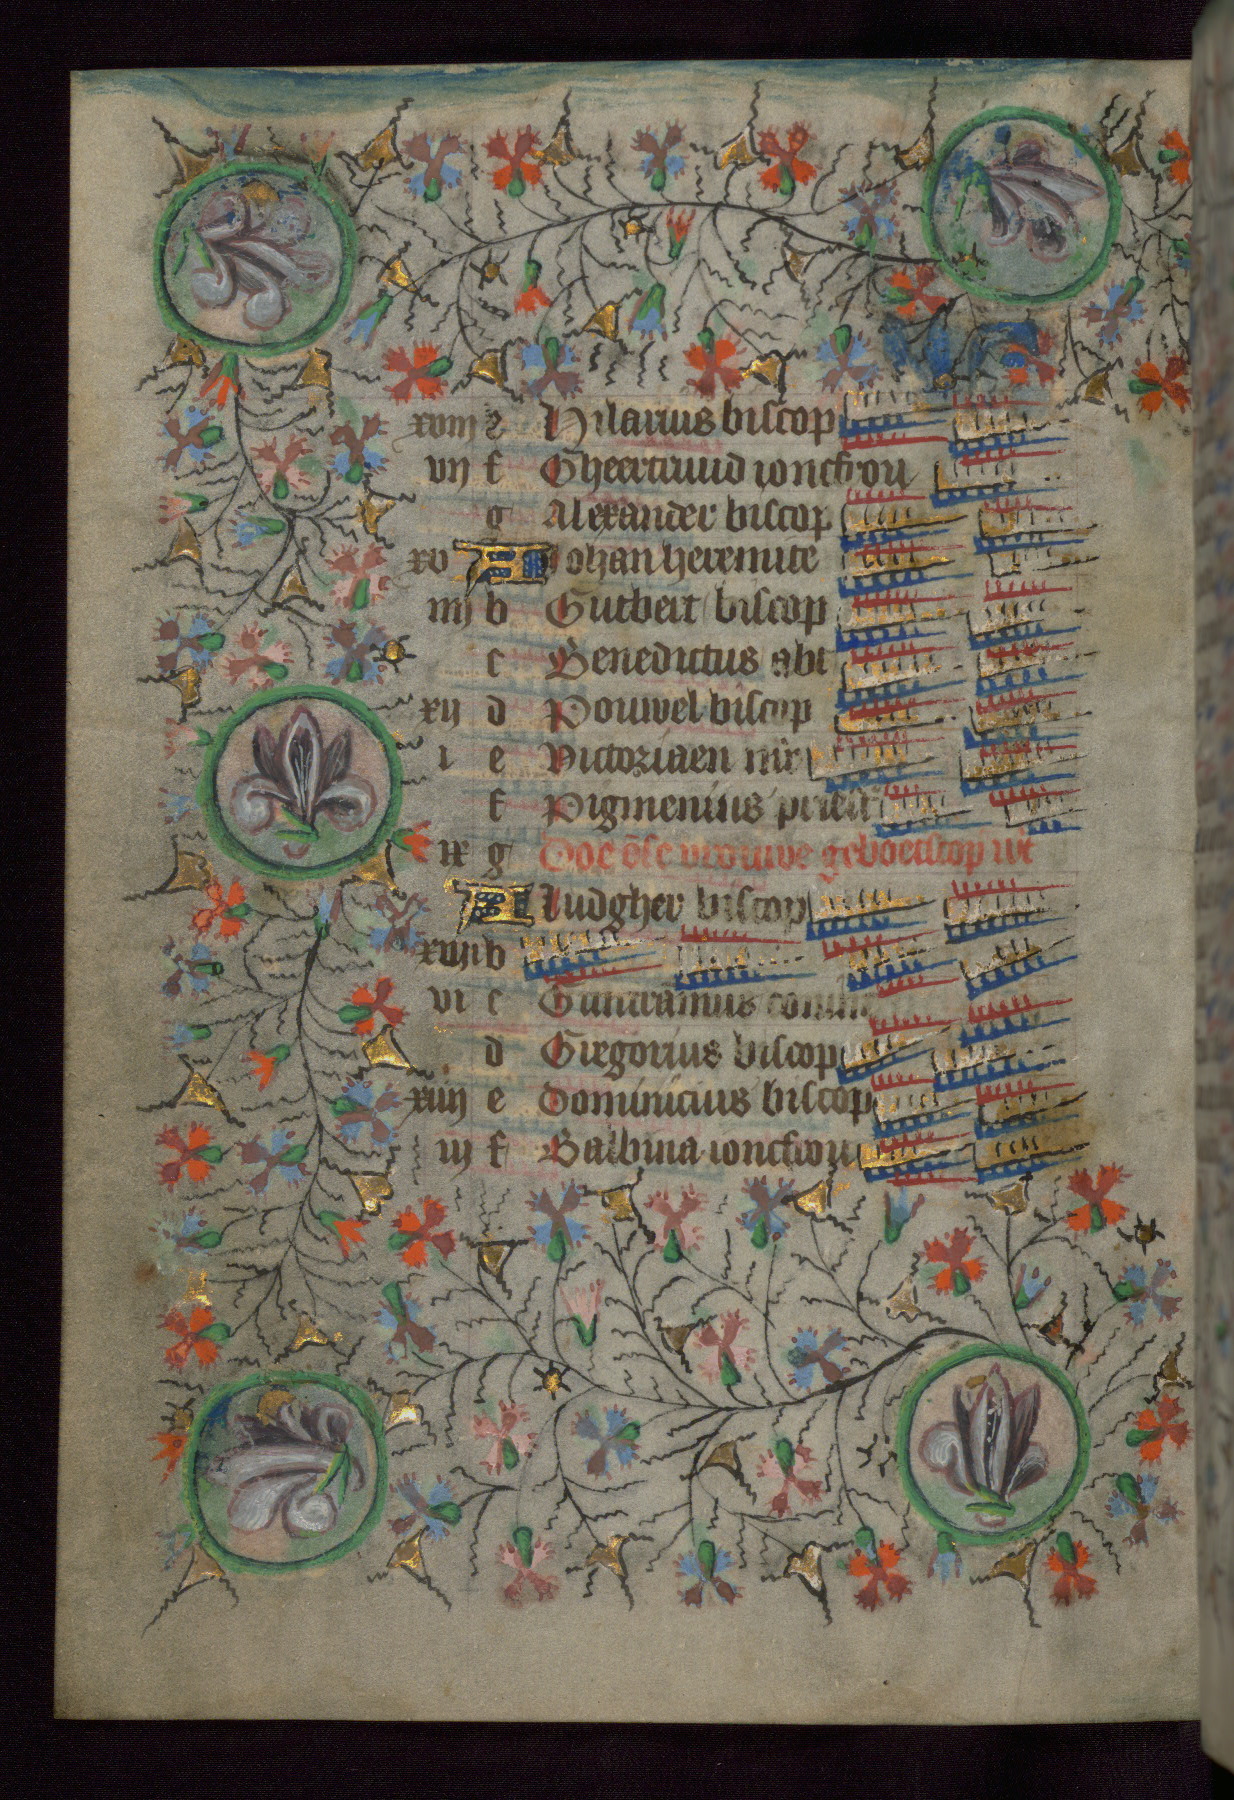 xviij e Hilarius biscop
vij f Gheertruud ioncfrou
g Alexander biscop
xv A Johan heremite
iiij b Gutbert biscop
c Benedictus abt
xij d Pouwel biscop
i e Victoriaen mr
f Pigmenius priest
ix g Doe onse vrouwe geboetscop wt
A Ludgher biscop
xvij b
vi c Guntramus coninc
d Gregorius biscop
xiiij e Dominicius biscop
iij f Balbina ioncfrou